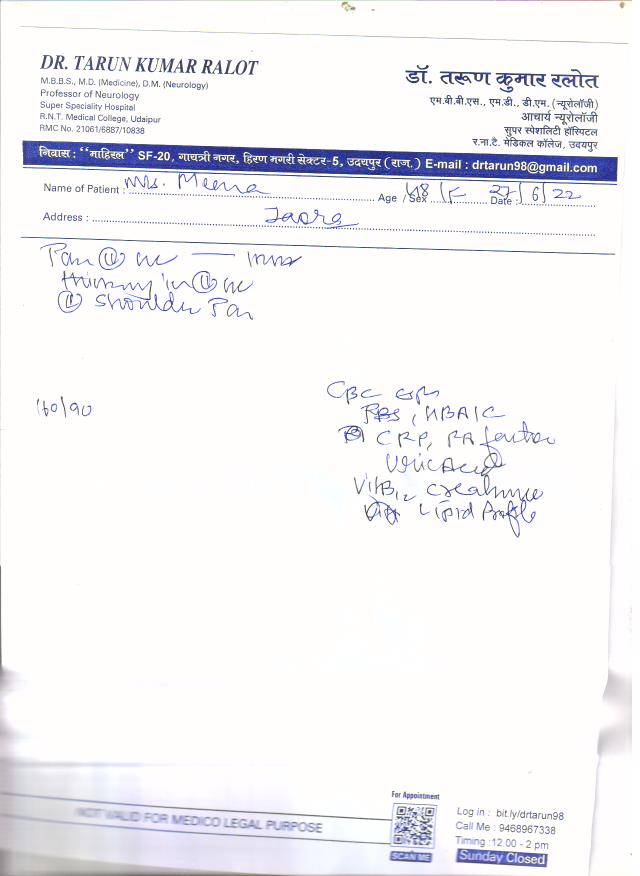 DR. TARUN KUMAR RALOT
M.B.B.S., M.D. (Medicine), D.M. (Neurology)
Professor of Neurology
Super Speciality Hospital
R.N.T. Medical College, Udaipur
RMC No. 21061/6887/10838
डॉ. तरूण कुमार रलोत
एम.बी.बी.एस., एम.डी., डी.एम. (न्यूरोलॉजी)
आचार्य न्यूरोलॉजी
सुपर स्पेशलिटी हॉस्पिटल
र.ना.टै. मेडिकल कॉलेज, उदयपुर
निवास : "माहिरल" SF-20, गायत्री नगर, हिरण मगरी सेक्टर-5, उदयपुर (राज.) E-mail : drtarun98@gmail.com
Name of Patient : Mrs. Meena Age / Sex 48 / F Date : 27/6/22
Address : Jaora
Pain (L)
in (L)
(L) Shoulder Pain
160/90
CBC ESR
RBS, HBA1C
CRP, RA factor
Uric Acid
Vit B12 Creatinine
Lipid Profile
NOT VALID FOR MEDICO LEGAL PURPOSE
For Appointment
SCAN ME
Log in : bit.ly/drtarun98
Call Me : 9468967338
Timing :12.00 - 2 pm
Sunday Closed